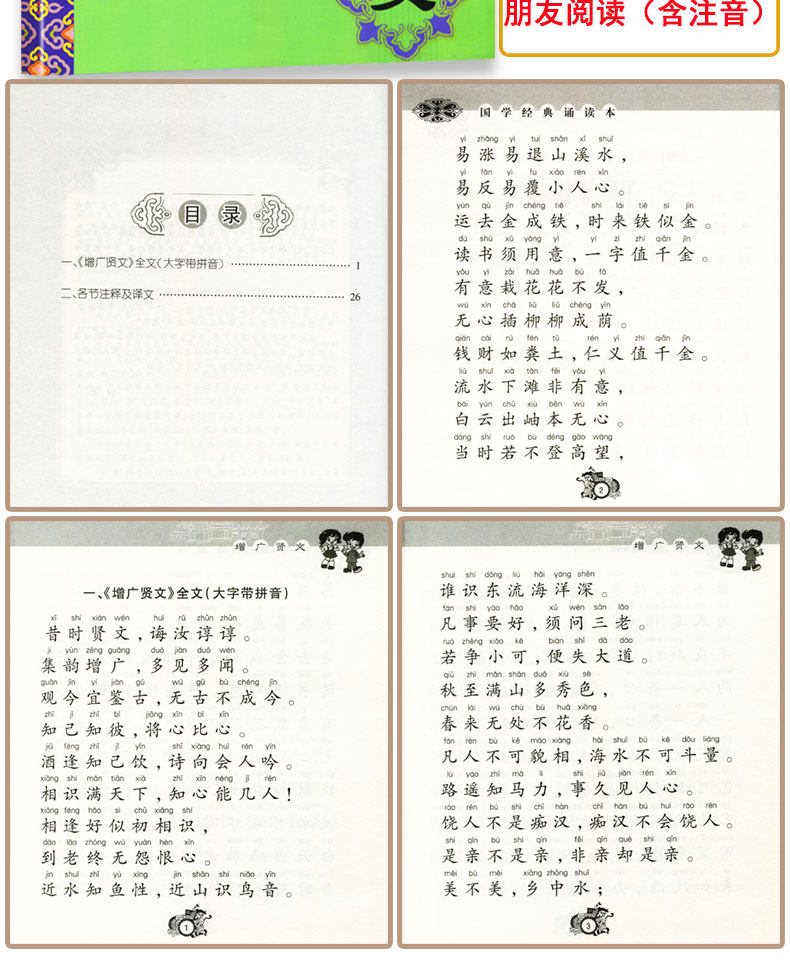 朋友阅读（含注音）
目录
一、《增广贤文》全文(大字带拼音) 1
二、各节注释及译文 26
国学经典诵读本
yì zhǎng yì tuì shān xī shuǐ
易涨易退山溪水，
yì fǎn yì fù xiǎo rén xīn
易反易覆小人心。
yùn qù jīn chéng tiě shí lái tiě sì jīn
运去金成铁，时来铁似金。
dú shū xū yòng yì yí zì zhí qiān jīn
读书须用意，一字值千金。
yǒu yì zāi huā huā bù fā
有意栽花花不发，
wú xīn chā liǔ liǔ chéng yīn
无心插柳柳成荫。
qián cái rú fèn tǔ rén yì zhí qiān jīn
钱财如粪土，仁义值千金。
liú shuǐ xià tān fēi yǒu yì
流水下滩非有意，
bái yún chū xiù běn wú xīn
白云出岫本无心。
dāng shí ruò bù dēng gāo wàng
当时若不登高望，
2
增广贤文
一、《增广贤文》全文(大字带拼音)
xī shí xián wén huì rǔ zhūn zhūn
昔时贤文，诲汝谆谆。
jí yùn zēng guǎng duō jiàn duō wén
集韵增广，多见多闻。
guān jīn yí jiàn gǔ wú gǔ bù chéng jīn
观今宜鉴古，无古不成今。
zhī jǐ zhī bǐ jiāng xīn bǐ xīn
知己知彼，将心比心。
jiǔ féng zhī jǐ yǐn shī xiàng huì rén yín
酒逢知己饮，诗向会人吟。
xiāng shí mǎn tiān xià zhī xīn néng jǐ rén
相识满天下，知心能几人！
xiāng féng hǎo sì chū xiāng shí
相逢好似初相识，
dào lǎo zhōng wú yuàn hèn xīn
到老终无怨恨心。
jìn shuǐ zhī yú xìng jìn shān shí niǎo yīn
近水知鱼性，近山识鸟音。
1
增广贤文
shuí shí dōng liú hǎi yáng shēn
谁识东流海洋深。
fán shì yào hǎo xū wèn sān lǎo
凡事要好，须问三老。
ruò zhēng xiǎo kě biàn shī dà dào
若争小可，便失大道。
qiū zhì mǎn shān duō xiù sè
秋至满山多秀色，
chūn lái wú chù bù huā xiāng
春来无处不花香。
fán rén bù kě mào xiàng hǎi shuǐ bù kě dǒu liáng
凡人不可貌相，海水不可斗量。
lù yáo zhī mǎ lì shì jiǔ jiàn rén xīn
路遥知马力，事久见人心。
ráo rén bú shì chī hàn chī hàn bú huì ráo rén
饶人不是痴汉，痴汉不会饶人。
shì qīn bú shì qīn fēi qīn què shì qīn
是亲不是亲，非亲却是亲。
měi bù měi xiāng zhōng shuǐ
美不美，乡中水；
3